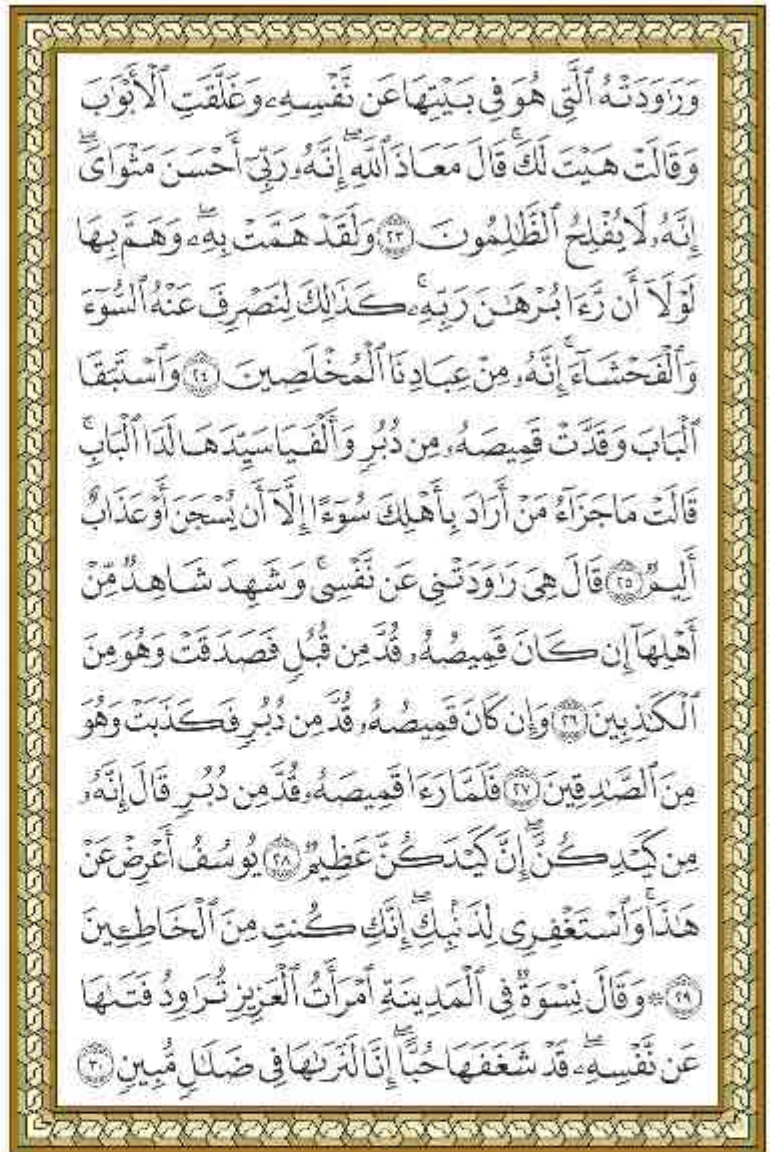 وَرَٰوَدَتْهُ ٱلَّتِي هُوَ فِي بَيْتِهَا عَن نَّفْسِهِۦ وَغَلَّقَتِ ٱلْأَبْوَٰبَ
وَقَالَتْ هَيْتَ لَكَ ۚ قَالَ مَعَاذَ ٱللَّهِ ۖ إِنَّهُۥ رَبِّيٓ أَحْسَنَ مَثْوَايَ ۖ
إِنَّهُۥ لَا يُفْلِحُ ٱلظَّٰلِمُونَ ٢٣ وَلَقَدْ هَمَّتْ بِهِۦ ۖ وَهَمَّ بِهَا
لَوْلَآ أَن رَّءَا بُرْهَٰنَ رَبِّهِۦ ۚ كَذَٰلِكَ لِنَصْرِفَ عَنْهُ ٱلسُّوٓءَ
وَٱلْفَحْشَآءَ ۚ إِنَّهُۥ مِنْ عِبَادِنَا ٱلْمُخْلَصِينَ ٢٤ وَٱسْتَبَقَا
ٱلْبَابَ وَقَدَّتْ قَمِيصَهُۥ مِن دُبُرٍ وَأَلْفَيَا سَيِّدَهَا لَدَا ٱلْبَابِ ۚ
قَالَتْ مَا جَزَآءُ مَنْ أَرَادَ بِأَهْلِكَ سُوٓءًا إِلَّآ أَن يُسْجَنَ أَوْ عَذَابٌ
أَلِيمٌ ٢٥ قَالَ هِيَ رَٰوَدَتْنِي عَن نَّفْسِي ۚ وَشَهِدَ شَاهِدٌ مِّنْ
أَهْلِهَآ إِن كَانَ قَمِيصُهُۥ قُدَّ مِن قُبُلٍ فَصَدَقَتْ وَهُوَ مِنَ
ٱلْكَٰذِبِينَ ٢٦ وَإِن كَانَ قَمِيصُهُۥ قُدَّ مِن دُبُرٍ فَكَذَبَتْ وَهُوَ
مِنَ ٱلصَّٰدِقِينَ ٢٧ فَلَمَّا رَءَا قَمِيصَهُۥ قُدَّ مِن دُبُرٍ قَالَ إِنَّهُۥ
مِن كَيْدِكُنَّ ۖ إِنَّ كَيْدَكُنَّ عَظِيمٌ ٢٨ يُوسُفُ أَعْرِضْ عَنْ
هَٰذَا ۚ وَٱسْتَغْفِرِي لِذَنۢبِكِ ۖ إِنَّكِ كُنتِ مِنَ ٱلْخَاطِـِٔينَ
٢٩ ۞ وَقَالَ نِسْوَةٌ فِي ٱلْمَدِينَةِ ٱمْرَأَتُ ٱلْعَزِيزِ تُرَٰوِدُ فَتَىٰهَا
عَن نَّفْسِهِۦ ۖ قَدْ شَغَفَهَا حُبًّا ۖ إِنَّا لَنَرَىٰهَا فِي ضَلَٰلٍ مُّبِينٍ ٣٠